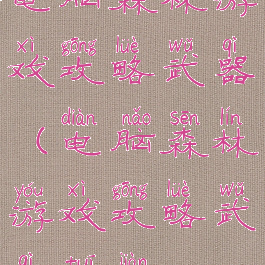 电脑森林游
xì gōng lüè wǔ qì
戏攻略武器
diàn nǎo sēn lín
（电脑森林
yóu xì gōng lüè wǔ
游戏攻略武